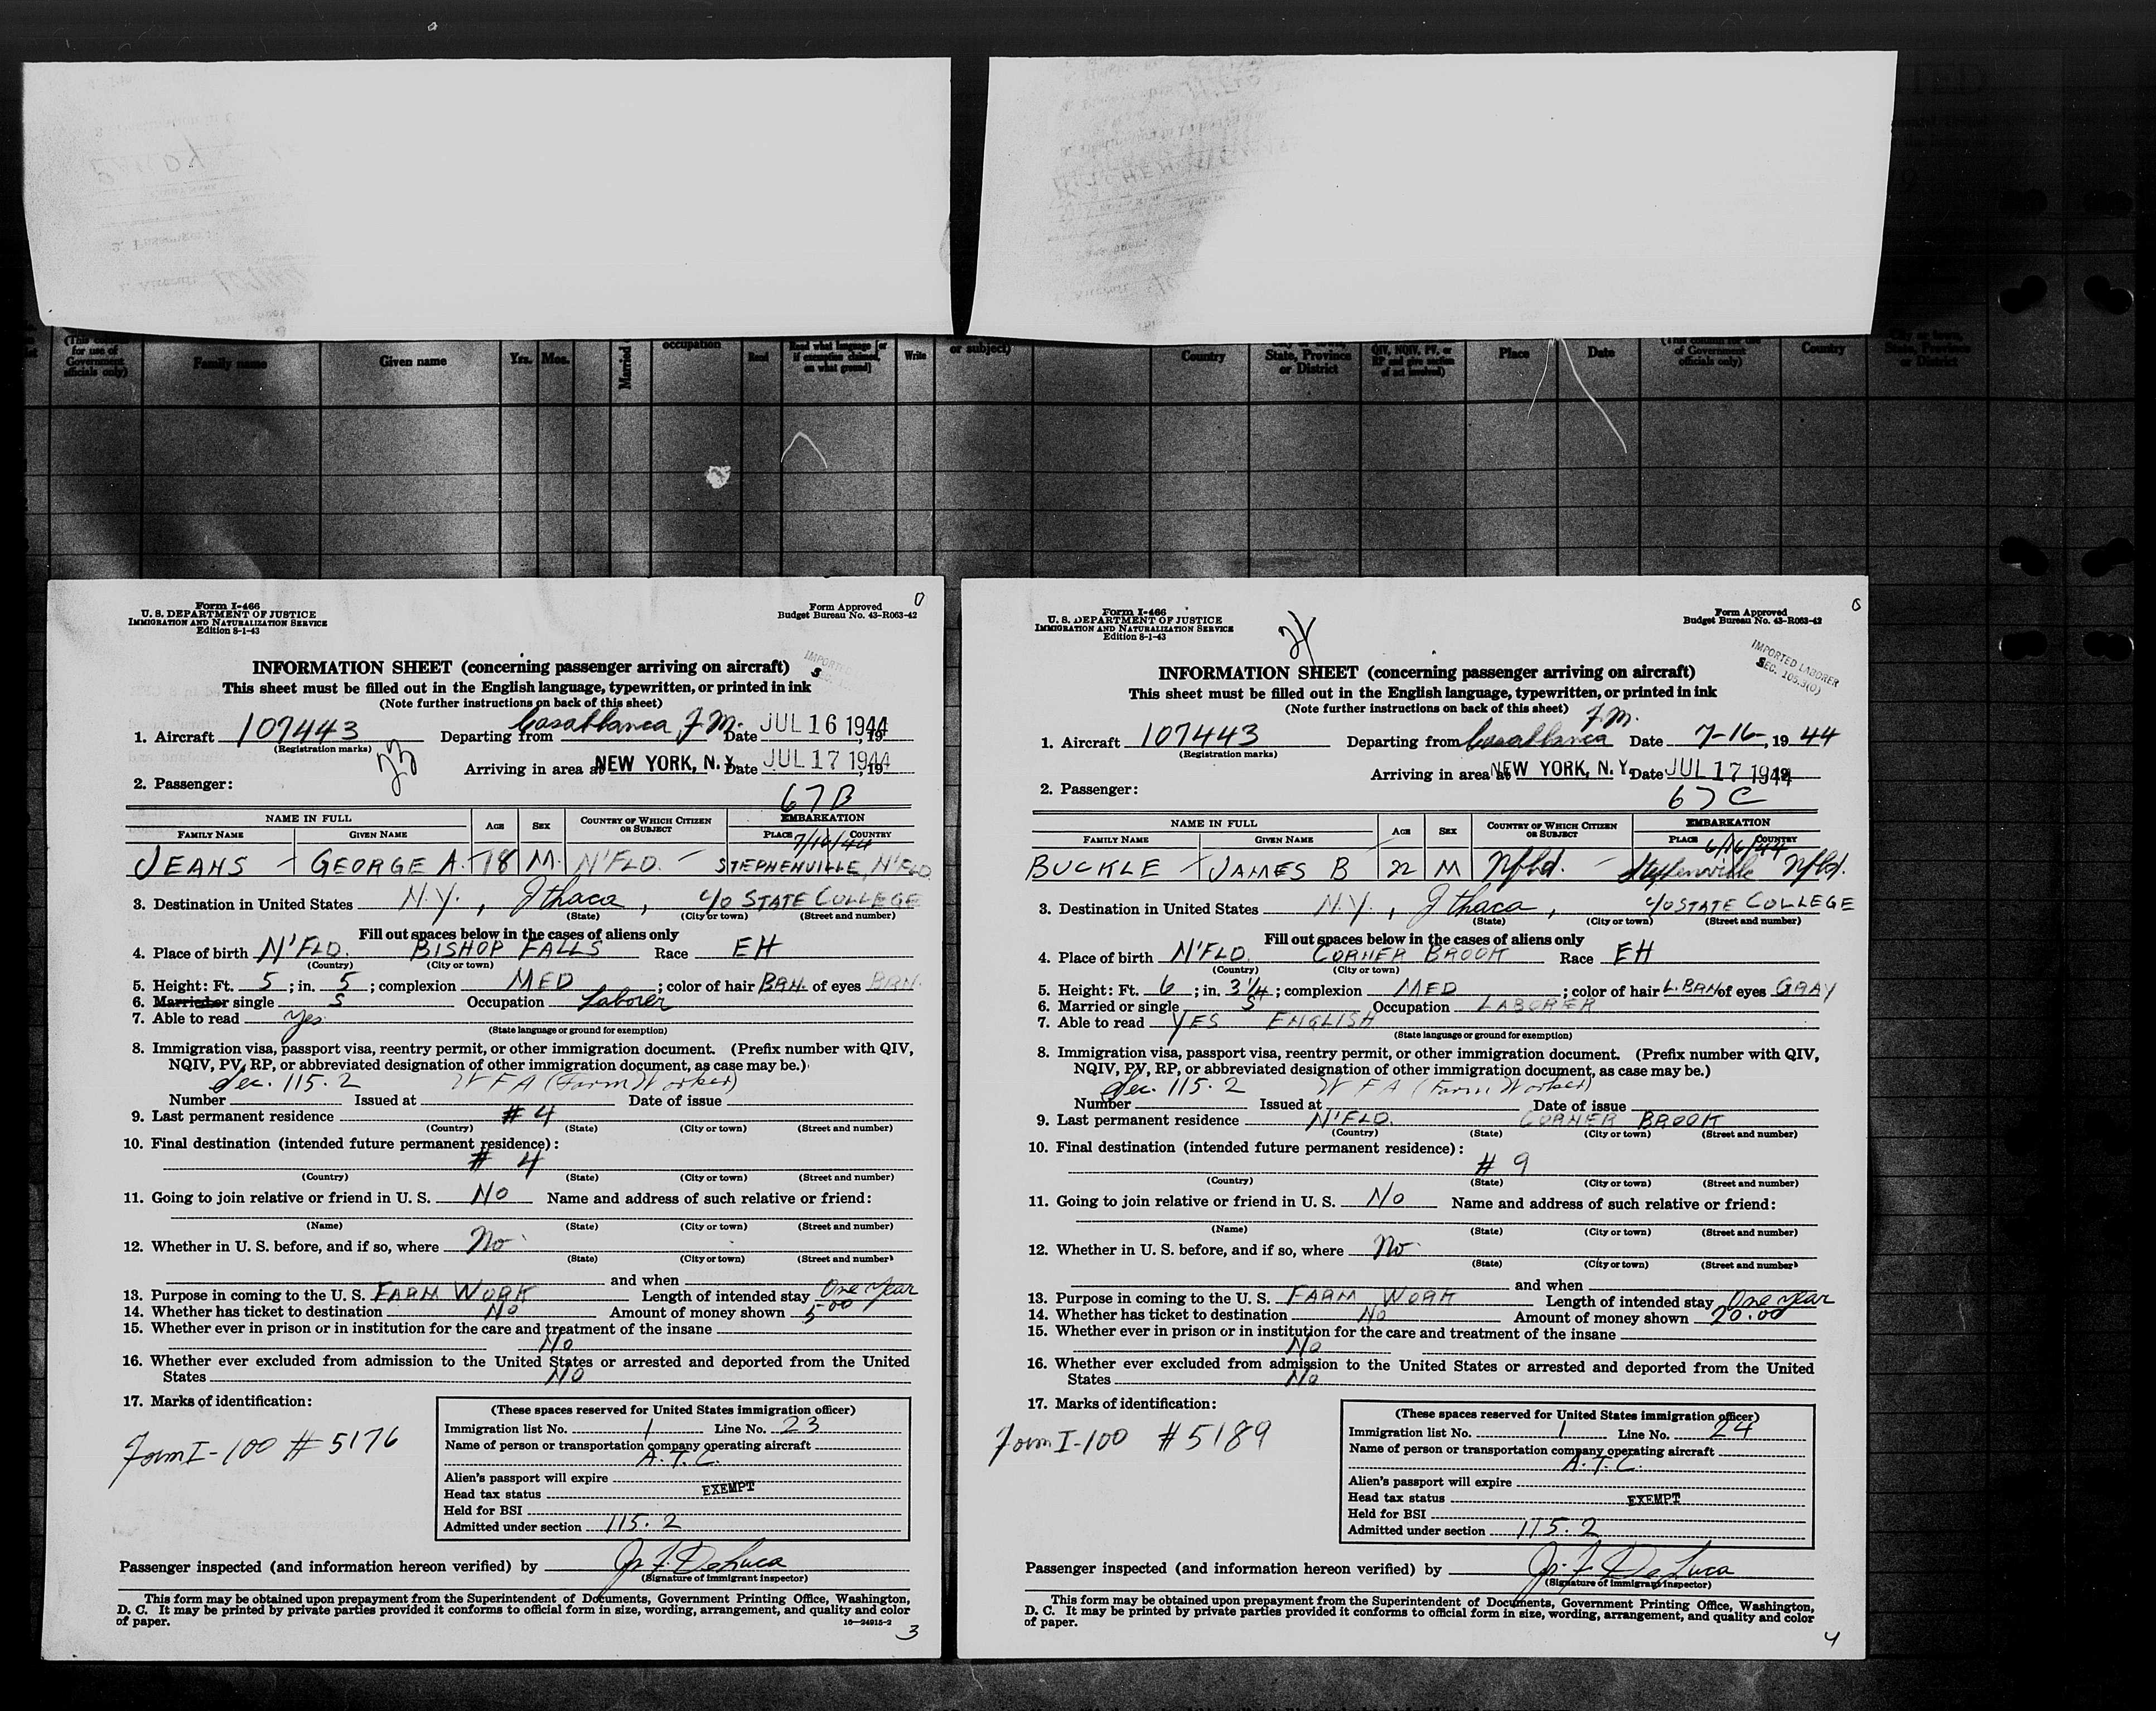 (This column
for use of
Government
officials only)
Family name
Given name
Yrs.
Mos.
Married
occupation
Read
Read what language [or
if exemption claimed,
on what ground]
Write
or subject)
Country
State, Province
or District
QIV, NQIV, PV, or
RP and give section
of act involved)
Place
Date
of Government
officials only)
Country
City or town,
State, Province
or District
Form I-466
U. S. DEPARTMENT OF JUSTICE
IMMIGRATION AND NATURALIZATION SERVICE
Edition 8-1-43
0
Form Approved
Budget Bureau No. 43-R063-42
IMPORTED
S
INFORMATION SHEET (concerning passenger arriving on aircraft)
This sheet must be filled out in the English language, typewritten, or printed in ink
(Note further instructions on back of this sheet)
1. Aircraft 107443 Departing from Casablanca F.M. Date JUL 16 1944, 19
(Registration marks)
23
Arriving in area at NEW YORK, N.Y. Date JUL 17 1944, 19
2. Passenger:
67B
NAME IN FULL AGE SEX COUNTRY OF WHICH CITIZEN OR SUBJECT EMBARKATION
FAMILY NAME GIVEN NAME PLACE COUNTRY
7/16/44
JEANS - GEORGE A. - 18 M. N'FLD. - STEPHENVILLE, N'FLD
3. Destination in United States N.Y. , Ithaca , c/o STATE COLLEGE
(State) (City or town) (Street and number)
Fill out spaces below in the cases of aliens only
4. Place of birth N'FLD. BISHOP FALLS Race EH
(Country) (City or town)
5. Height: Ft. 5 ; in. 5 ; complexion MED ; color of hair BRN. of eyes BRN.
6. Married or single S Occupation Laborer
7. Able to read Yes
(State language or ground for exemption)
8. Immigration visa, passport visa, reentry permit, or other immigration document. (Prefix number with QIV,
NQIV, PV, RP, or abbreviated designation of other immigration document, as case may be.)
Sec. 115.2 W F A (Farm Worker)
Number Issued at Date of issue
9. Last permanent residence # 4
(Country) (State) (City or town) (Street and number)
10. Final destination (intended future permanent residence):
# 4
(Country) (State) (City or town) (Street and number)
11. Going to join relative or friend in U. S. No Name and address of such relative or friend:
(Name) (State) (City or town) (Street and number)
12. Whether in U. S. before, and if so, where No
(State) (City or town) (Street and number)
and when
13. Purpose in coming to the U. S. FARM WORK Length of intended stay One Year
14. Whether has ticket to destination No Amount of money shown 5.00
15. Whether ever in prison or in institution for the care and treatment of the insane
No
16. Whether ever excluded from admission to the United States or arrested and deported from the United
States No
17. Marks of identification:
Form I-100 # 5176
(These spaces reserved for United States immigration officer)
Immigration list No. 1 Line No. 23
Name of person or transportation company operating aircraft
A. T. C.
Alien's passport will expire
Head tax status EXEMPT
Held for BSI
Admitted under section 115.2
Passenger inspected (and information hereon verified) by Jr. F. DeLuca
(Signature of immigrant inspector)
This form may be obtained upon prepayment from the Superintendent of Documents, Government Printing Office, Washington,
D. C. It may be printed by private parties provided it conforms to official form in size, wording, arrangement, and quality and color
of paper.
16-34915-2
3
Form I-466
U. S. DEPARTMENT OF JUSTICE
IMMIGRATION AND NATURALIZATION SERVICE
Edition 8-1-43
24
Form Approved
Budget Bureau No. 43-R063-42
IMPORTED LABORER
SEC. 105.3(0)
INFORMATION SHEET (concerning passenger arriving on aircraft)
This sheet must be filled out in the English language, typewritten, or printed in ink
(Note further instructions on back of this sheet)
F.M.
1. Aircraft 107443 Departing from Casablanca Date 7-16-, 19 44
(Registration marks)
Arriving in area at NEW YORK, N.Y. Date JUL 17 1944
2. Passenger:
67C
NAME IN FULL AGE SEX COUNTRY OF WHICH CITIZEN OR SUBJECT EMBARKATION
FAMILY NAME GIVEN NAME PLACE COUNTRY
6/16/44
BUCKLE - JAMES B 22 M Nfld. - Stephenville Nfld.
3. Destination in United States N.Y. , Ithaca , c/o STATE COLLEGE
(State) (City or town) (Street and number)
Fill out spaces below in the cases of aliens only
4. Place of birth N'FLD. CORNER BROOK Race EH
(Country) (City or town)
5. Height: Ft. 6 ; in. 3 1/4 ; complexion MED ; color of hair L. BRN of eyes GRAY
6. Married or single S Occupation LABORER
7. Able to read YES ENGLISH
(State language or ground for exemption)
8. Immigration visa, passport visa, reentry permit, or other immigration document. (Prefix number with QIV,
NQIV, PV, RP, or abbreviated designation of other immigration document, as case may be.)
Sec. 115.2 W F A (Farm Worker)
Number Issued at Date of issue
9. Last permanent residence N'FLD. CORNER BROOK
(Country) (State) (City or town) (Street and number)
10. Final destination (intended future permanent residence):
# 9
(Country) (State) (City or town) (Street and number)
11. Going to join relative or friend in U. S. No Name and address of such relative or friend:
(Name) (State) (City or town) (Street and number)
12. Whether in U. S. before, and if so, where No
(State) (City or town) (Street and number)
and when
13. Purpose in coming to the U. S. FARM WORK Length of intended stay One year
14. Whether has ticket to destination No Amount of money shown 20.00
15. Whether ever in prison or in institution for the care and treatment of the insane
No
16. Whether ever excluded from admission to the United States or arrested and deported from the United
States No
17. Marks of identification:
Form I-100 # 5189
(These spaces reserved for United States immigration officer)
Immigration list No. 1 Line No. 24
Name of person or transportation company operating aircraft
A. T. C.
Alien's passport will expire
Head tax status EXEMPT
Held for BSI
Admitted under section 115.2
Passenger inspected (and information hereon verified) by Jr. F. DeLuca
(Signature of immigrant inspector)
This form may be obtained upon prepayment from the Superintendent of Documents, Government Printing Office, Washington,
D. C. It may be printed by private parties provided it conforms to official form in size, wording, arrangement, and quality and color
of paper.
4